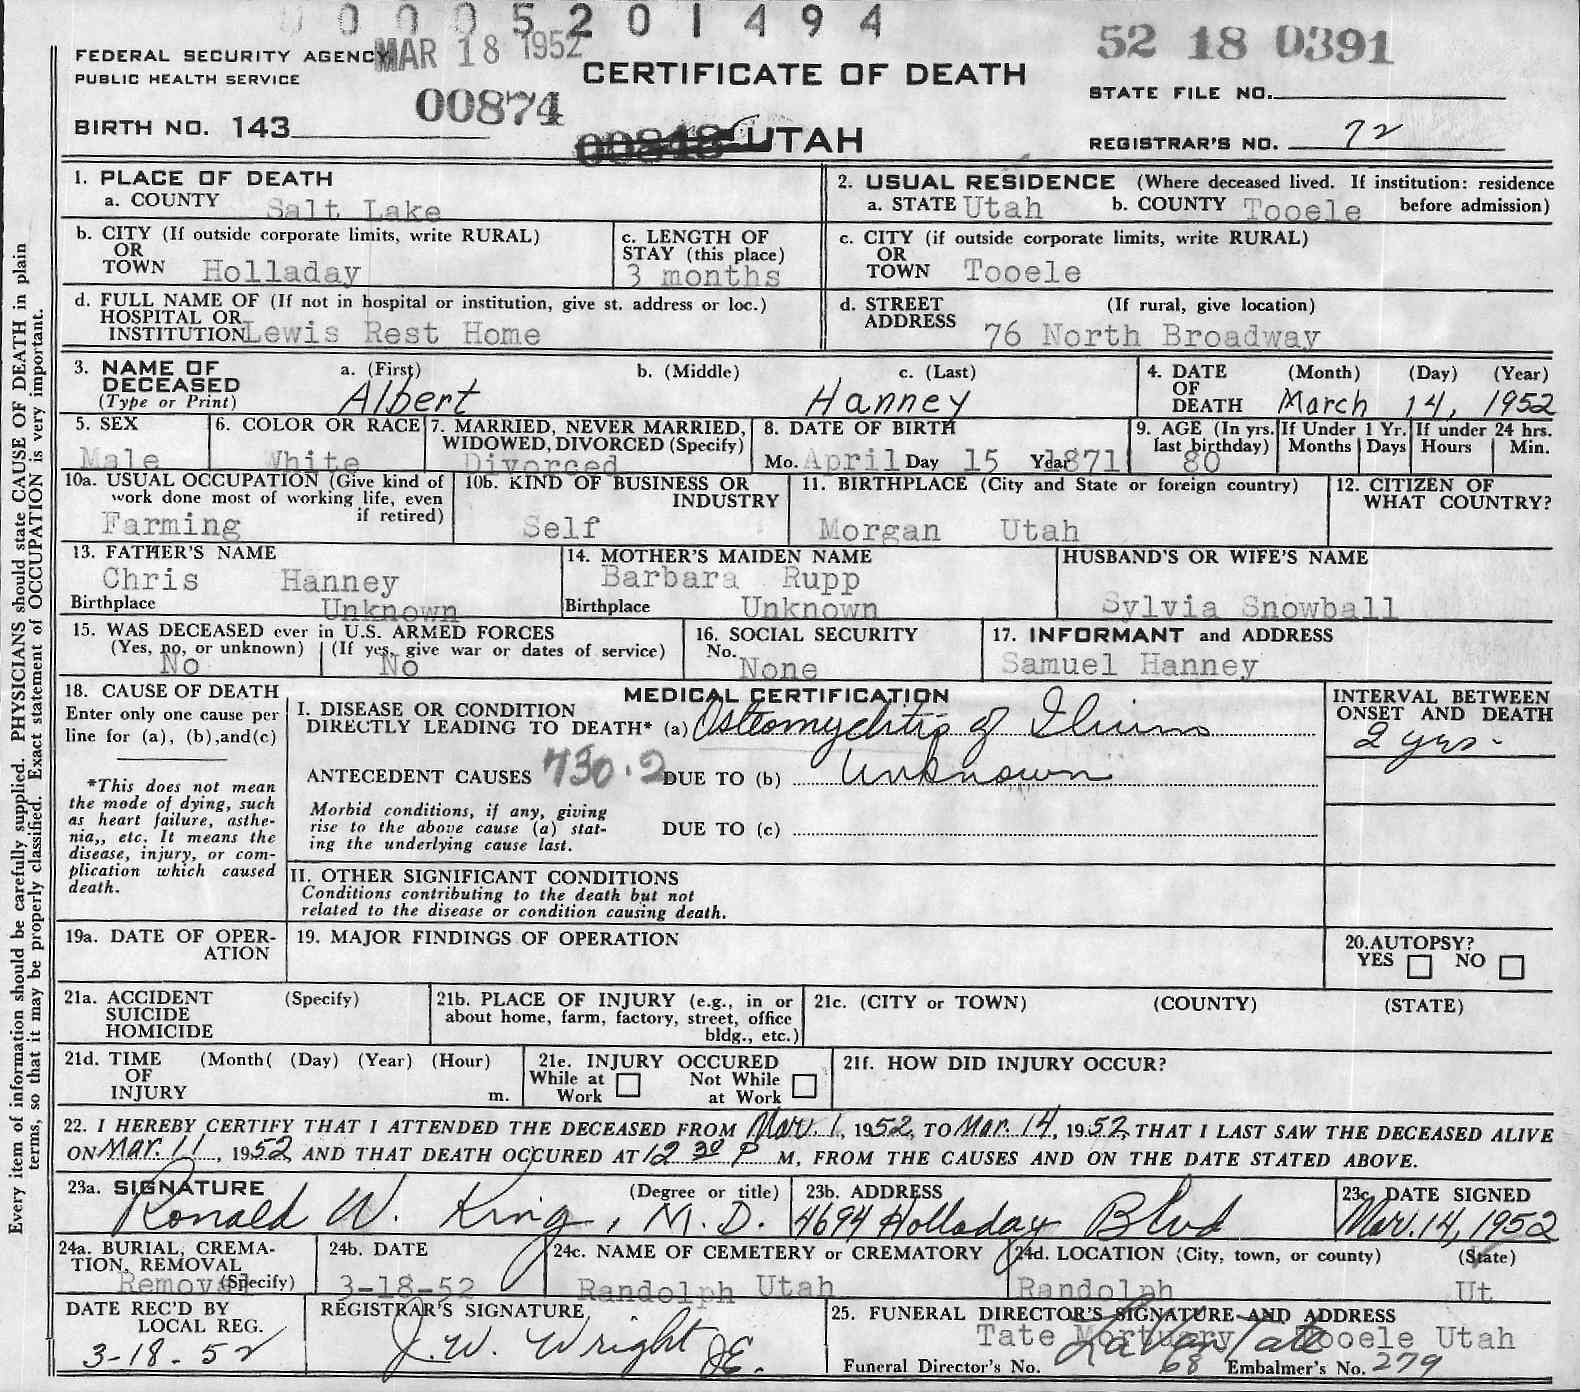 0 0 0 5 2 0 1 4 9 4
MAR 18 1952
52 18 0391
FEDERAL SECURITY AGENCY
PUBLIC HEALTH SERVICE
CERTIFICATE OF DEATH
STATE FILE NO.
00874
BIRTH NO. 143
00848 UTAH
REGISTRAR'S NO. 72
Every item of information should be carefully supplied. PHYSICIANS should state CAUSE OF DEATH in plain
terms, so that it may be properly classified. Exact statement of OCCUPATION is very important.
1. PLACE OF DEATH
a. COUNTY Salt Lake
2. USUAL RESIDENCE (Where deceased lived. If institution: residence
a. STATE Utah b. COUNTY Tooele before admission)
b. CITY (If outside corporate limits, write RURAL)
OR
TOWN Holladay
c. LENGTH OF
STAY (this place)
3 months
c. CITY (if outside corporate limits, write RURAL)
OR
TOWN Tooele
d. FULL NAME OF (If not in hospital or institution, give st. address or loc.)
HOSPITAL OR
INSTITUTION Lewis Rest Home
d. STREET (If rural, give location)
ADDRESS 76 North Broadway
3. NAME OF
DECEASED
(Type or Print)
a. (First) b. (Middle) c. (Last)
Albert Hanney
4. DATE (Month) (Day) (Year)
OF
DEATH March 14, 1952
5. SEX
Male
6. COLOR OR RACE
White
7. MARRIED, NEVER MARRIED,
WIDOWED, DIVORCED (Specify)
Divorced
8. DATE OF BIRTH
Mo. April Day 15 Year 1871
9. AGE (In yrs.
last birthday)
80
If Under 1 Yr.
Months Days
If under 24 hrs.
Hours Min.
10a. USUAL OCCUPATION (Give kind of
work done most of working life, even
if retired)
Farming
10b. KIND OF BUSINESS OR
INDUSTRY
Self
11. BIRTHPLACE (City and State or foreign country)
Morgan Utah
12. CITIZEN OF
WHAT COUNTRY?
13. FATHER'S NAME
Chris Hanney
Birthplace Unknown
14. MOTHER'S MAIDEN NAME
Barbara Rupp
Birthplace Unknown
HUSBAND'S OR WIFE'S NAME
Sylvia Snowball
15. WAS DECEASED ever in U.S. ARMED FORCES
(Yes, no, or unknown) (If yes, give war or dates of service)
No No
16. SOCIAL SECURITY
No. None
17. INFORMANT and ADDRESS
Samuel Hanney
18. CAUSE OF DEATH
Enter only one cause per
line for (a), (b),and(c)
*This does not mean
the mode of dying, such
as heart failure, asthe-
nia,, etc. It means the
disease, injury, or com-
plication which caused
death.
MEDICAL CERTIFICATION
I. DISEASE OR CONDITION
DIRECTLY LEADING TO DEATH* (a) Osteomyelitis of Ilium
ANTECEDENT CAUSES 730.2 DUE TO (b) Unknown
Morbid conditions, if any, giving
rise to the above cause (a) stat-
ing the underlying cause last.
DUE TO (c)
INTERVAL BETWEEN
ONSET AND DEATH
2 yrs.
II. OTHER SIGNIFICANT CONDITIONS
Conditions contributing to the death but not
related to the disease or condition causing death.
19a. DATE OF OPER-
ATION
19. MAJOR FINDINGS OF OPERATION
20.AUTOPSY?
YES NO
21a. ACCIDENT (Specify)
SUICIDE
HOMICIDE
21b. PLACE OF INJURY (e.g., in or
about home, farm, factory, street, office
bldg., etc.)
21c. (CITY or TOWN) (COUNTY) (STATE)
21d. TIME (Month( (Day) (Year) (Hour)
OF
INJURY m.
21e. INJURY OCCURED
While at Not While
Work at Work
21f. HOW DID INJURY OCCUR?
22. I HEREBY CERTIFY THAT I ATTENDED THE DECEASED FROM Mar. 1, 1952, TO Mar. 14, 1952, THAT I LAST SAW THE DECEASED ALIVE
ON Mar. 11, 1952, AND THAT DEATH OCCURED AT 12 30 P M, FROM THE CAUSES AND ON THE DATE STATED ABOVE.
23a. SIGNATURE (Degree or title)
Ronald W. King, M.D.
23b. ADDRESS
4694 Holladay Blvd
23c. DATE SIGNED
Mar. 14, 1952
24a. BURIAL, CREMA-
TION, REMOVAL
(Specify)
Removal
24b. DATE
3-18-52
24c. NAME OF CEMETERY or CREMATORY
Randolph Utah
24d. LOCATION (City, town, or county) (State)
Randolph Ut
DATE REC'D BY
LOCAL REG.
3-18-52
REGISTRAR'S SIGNATURE
J.W. Wright JE.
25. FUNERAL DIRECTOR'S SIGNATURE AND ADDRESS
Tate Mortuary Tooele Utah
LaVan Tate
Funeral Director's No. 68 Embalmer's No. 279